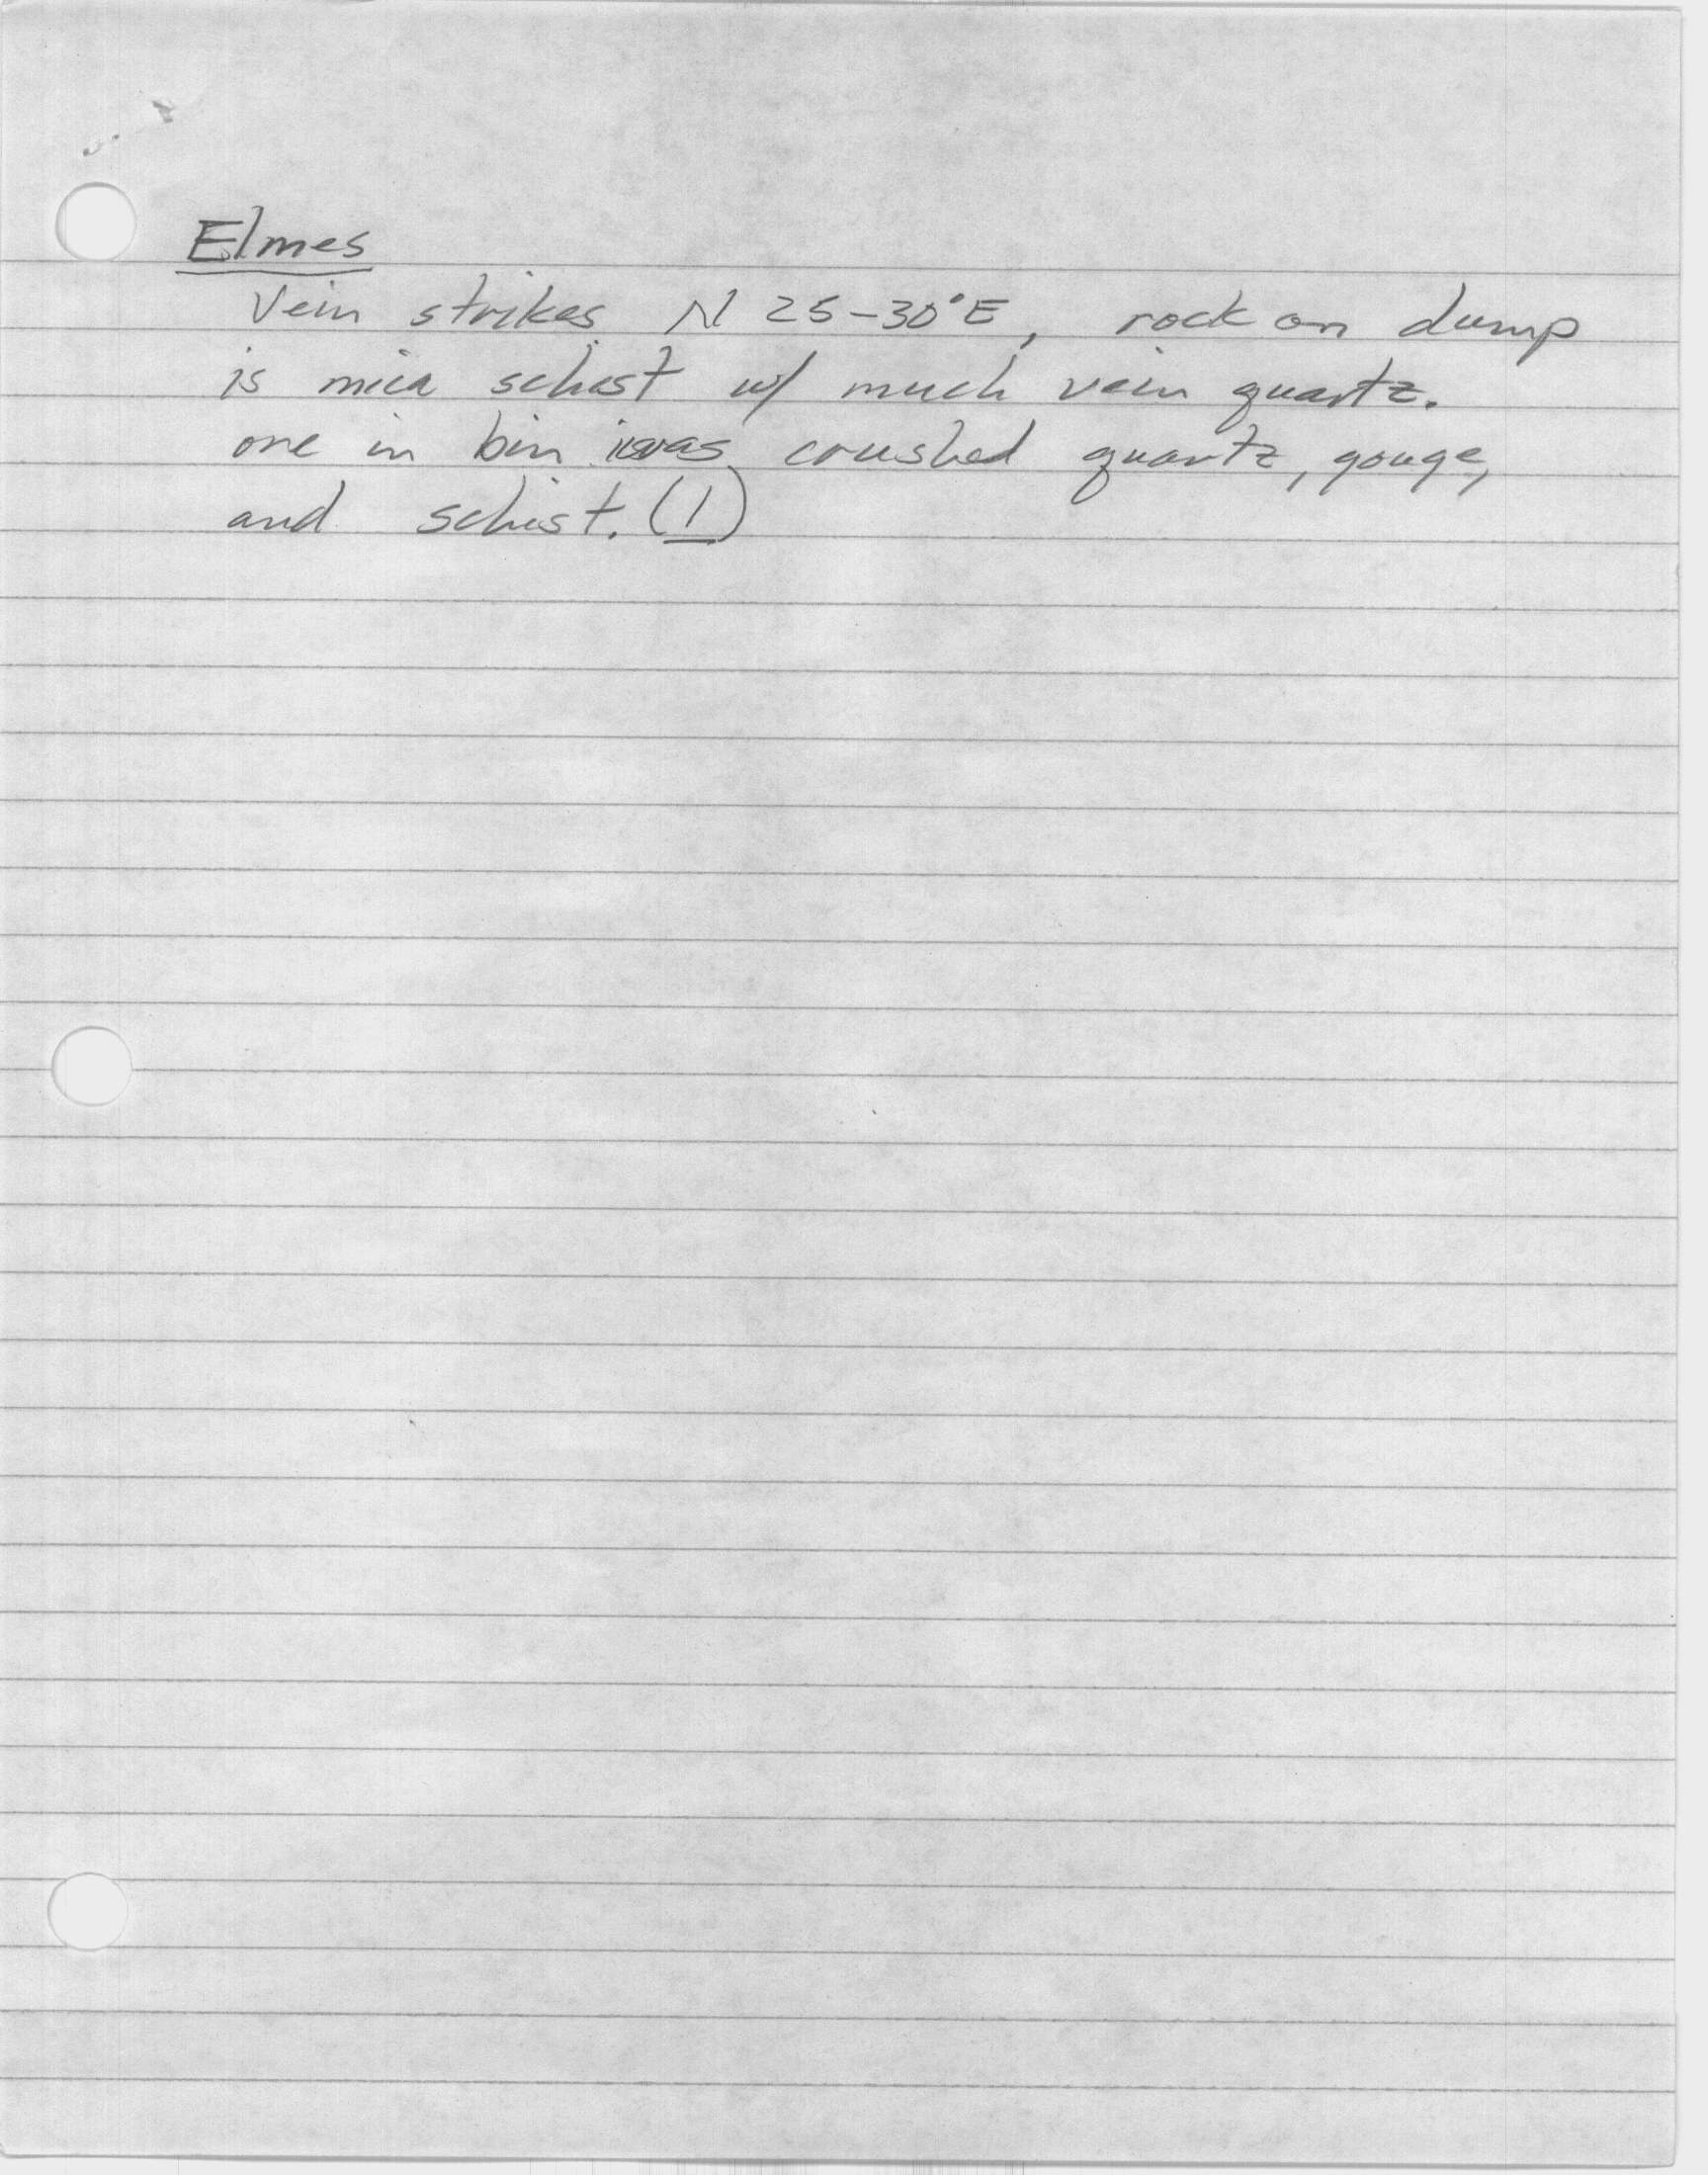 Elmes
Vein strikes N 25-30°E, rock on dump
is mica schist w/ much vein quartz.
ore in bin was crushed quartz, gouge,
and schist. (1)